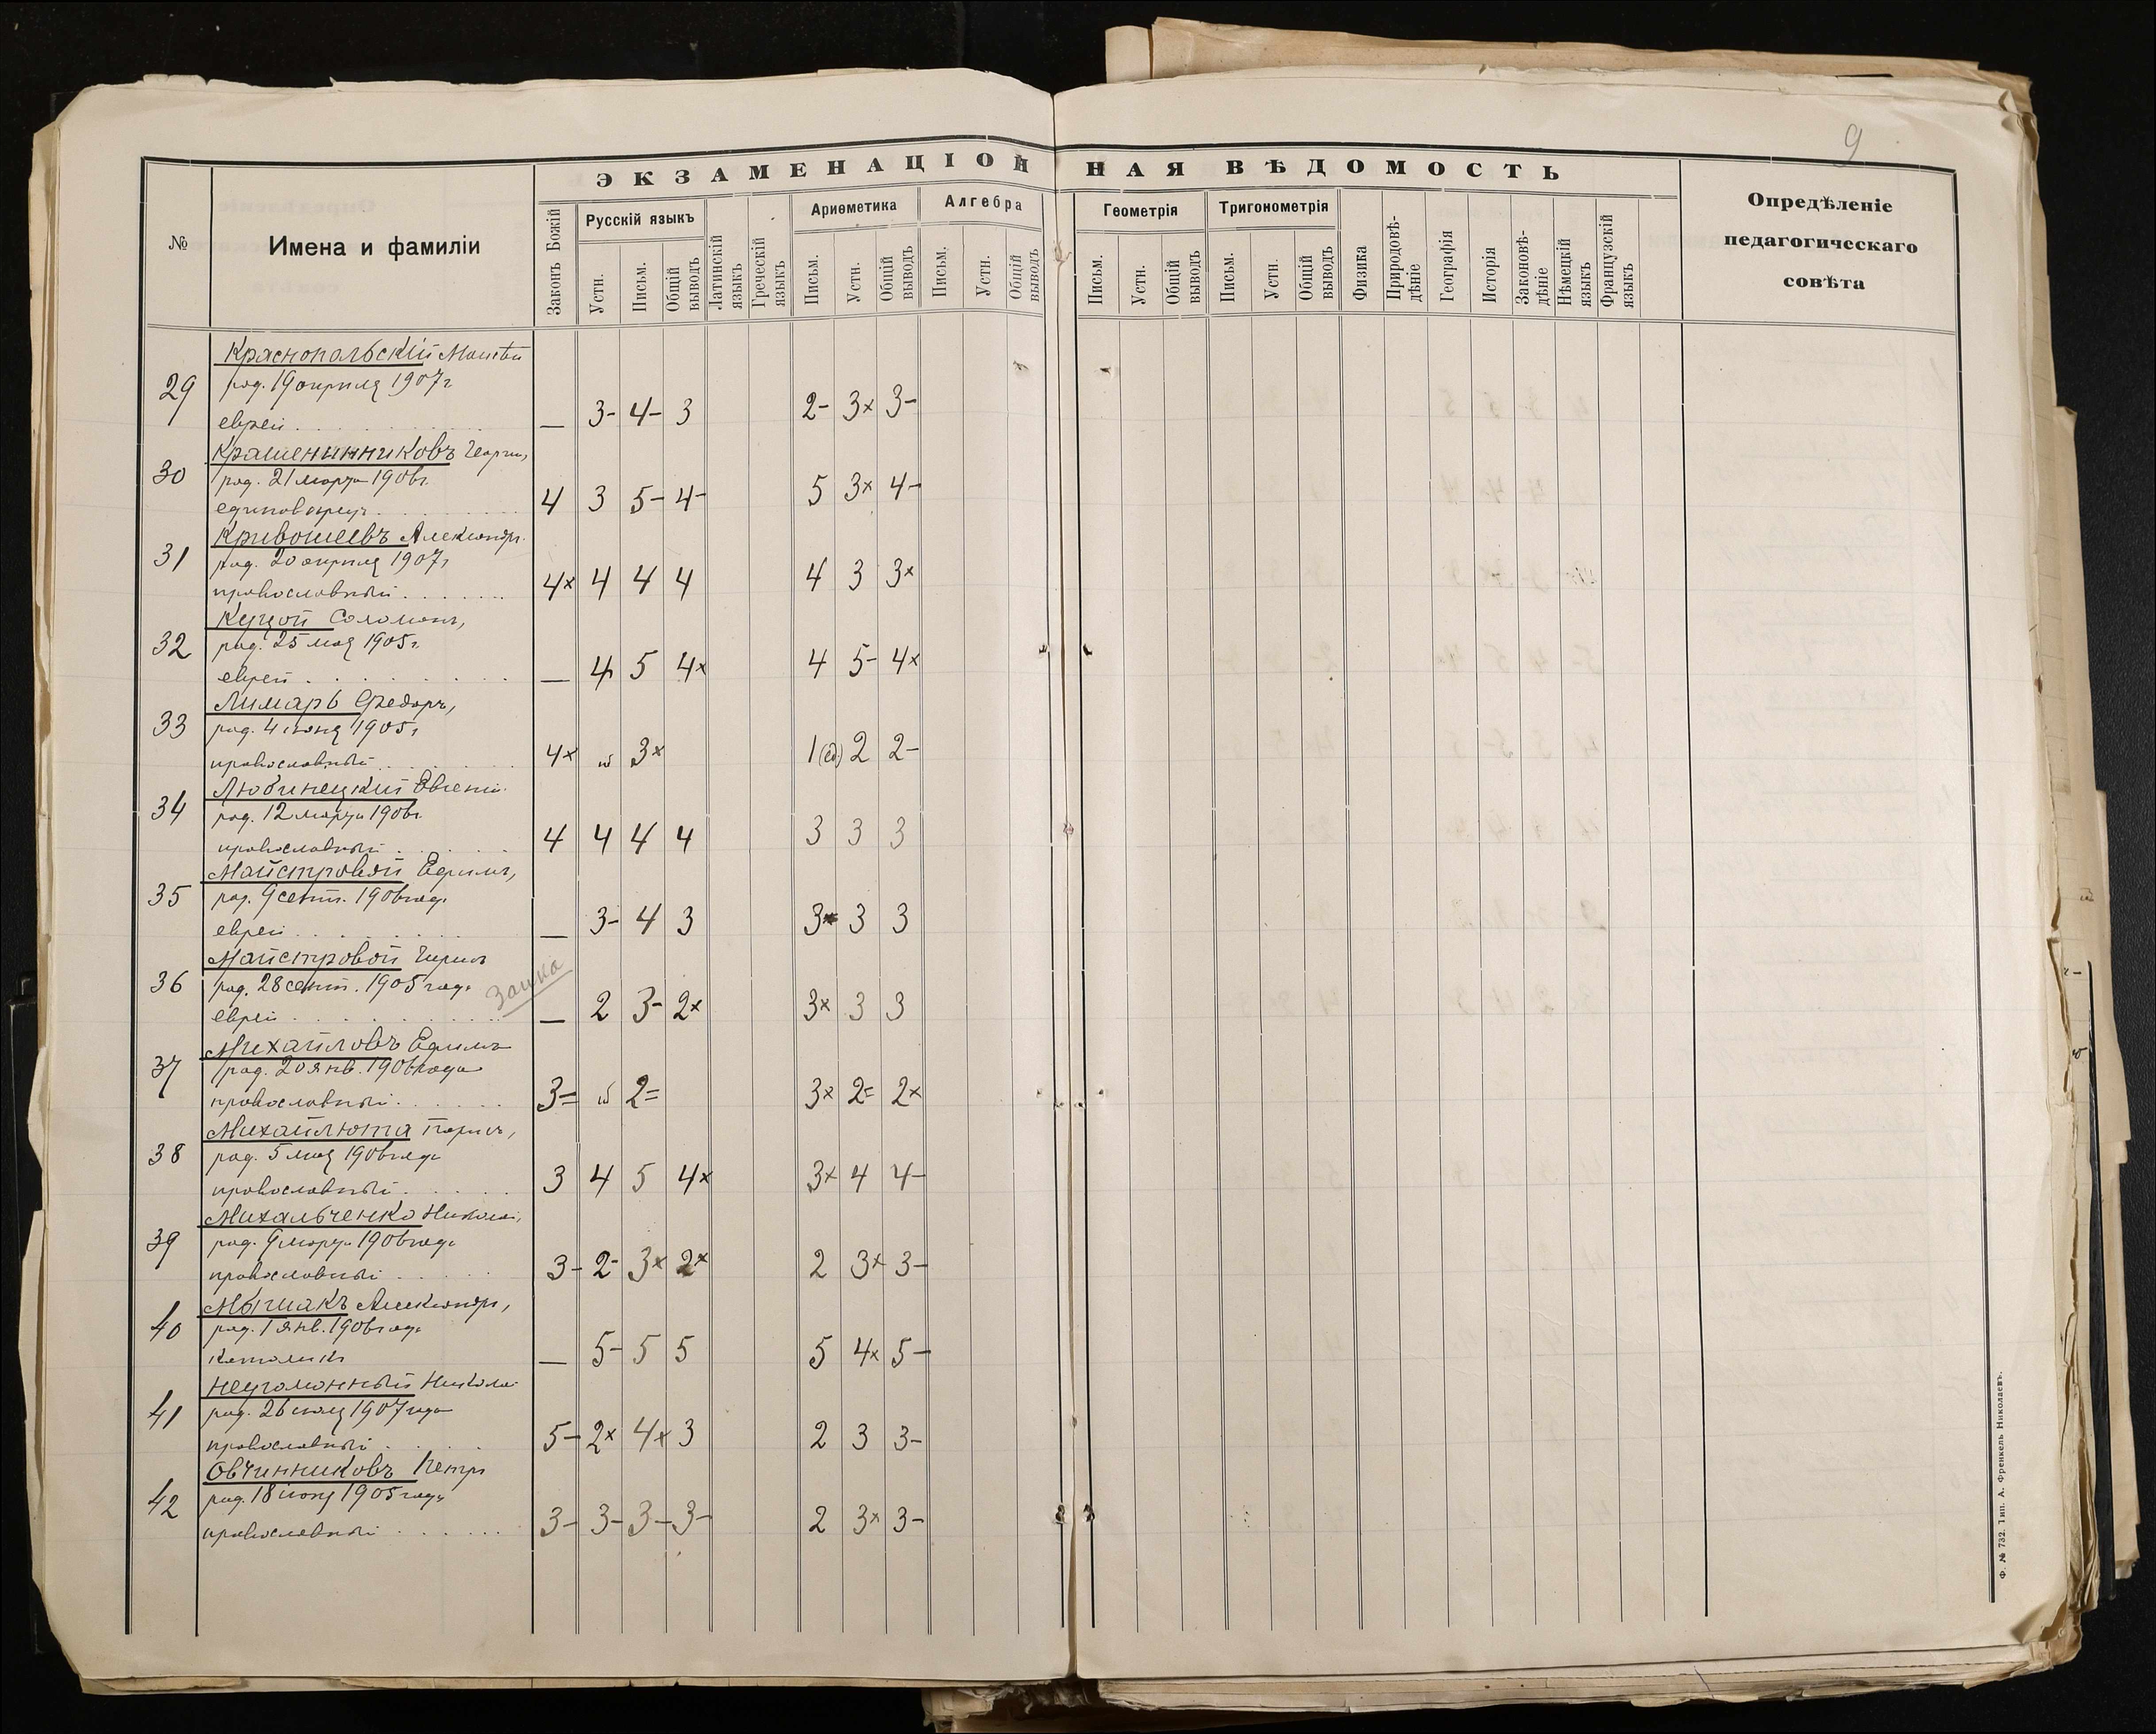 9
ЭКЗАМЕНАЦІОННАЯ ВѢДОМОСТЬ
№
Имена и фамиліи
Законъ Божій
Русскій языкъ
Устн.
Письм.
Общій выводъ
Латинскій языкъ
Греческій языкъ
Ариѳметика
Письм.
Устн.
Общій выводъ
Алгебра
Письм.
Устн.
Общій выводъ
Геометрія
Письм.
Устн.
Общій выводъ
Тригонометрія
Письм.
Устн.
Общій выводъ
Физика
Природовѣ-
дѣніе
Географія
Исторія
Законовѣ-
дѣніе
Нѣмецкій языкъ
Французскій языкъ
Опредѣленіе
педагогическаго
совѣта
Краснопольскій Моисей
29 род. 19 апрѣля 1907 г
еврей — 3- 4- 3 2- 3× 3-
Крашенинниковъ Георгій,
30 род. 21 марта 1906 г.
единовѣрецъ 4 3 5- 4- 5 3× 4-
Кривошеевъ Александръ.
31 род. 20 апрѣля 1907 г
православный 4× 4 4 4 4 3 3×
Куцой Соломонъ,
32 род. 25 мая 1905 г.
еврей — 4 5 4× 4 5- 4×
Лимарь Федоръ,
33 род. 4 іюня 1905 г
православный 4× 3× 1 (ед) 2 2-
Любинецкій Евгеній
34 род. 12 марта 1906 г
православный 4 4 4 4 3 3 3
Майстровой Ефимъ,
35 род. 9 сент. 1906 года
еврей — 3- 4 3 3× 3 3
Майстровой
36 род. 28 сент. 1905 года
Заика
еврей — 2 3- 2× 3× 3 3
Михайловъ Ефимъ
37 род. 20 янв. 1906 года
православный 3= 2= 3× 2= 2×
Михайлюта
38 род. 5 мая 1906 года
православный 3 4 5 4× 3× 4 4-
Михальченко Николай,
39 род. 9 марта 1906 года
православный 3- 2- 3× 2× 2 3× 3-
Мычакъ Александръ,
40 род. 1 янв. 1906 года
католикъ — 5- 5 5 5 4× 5-
Неугомонный Николай
41 род. 26 1907 года
православный 5- 2× 4× 3 2 3 3-
Овчинниковъ Петръ
42 род. 18 іюня 1905 года
православный 3- 3- 3- 3- 2 3× 3-
Ф. № 732. Тип. А. Френкель Николаевъ.